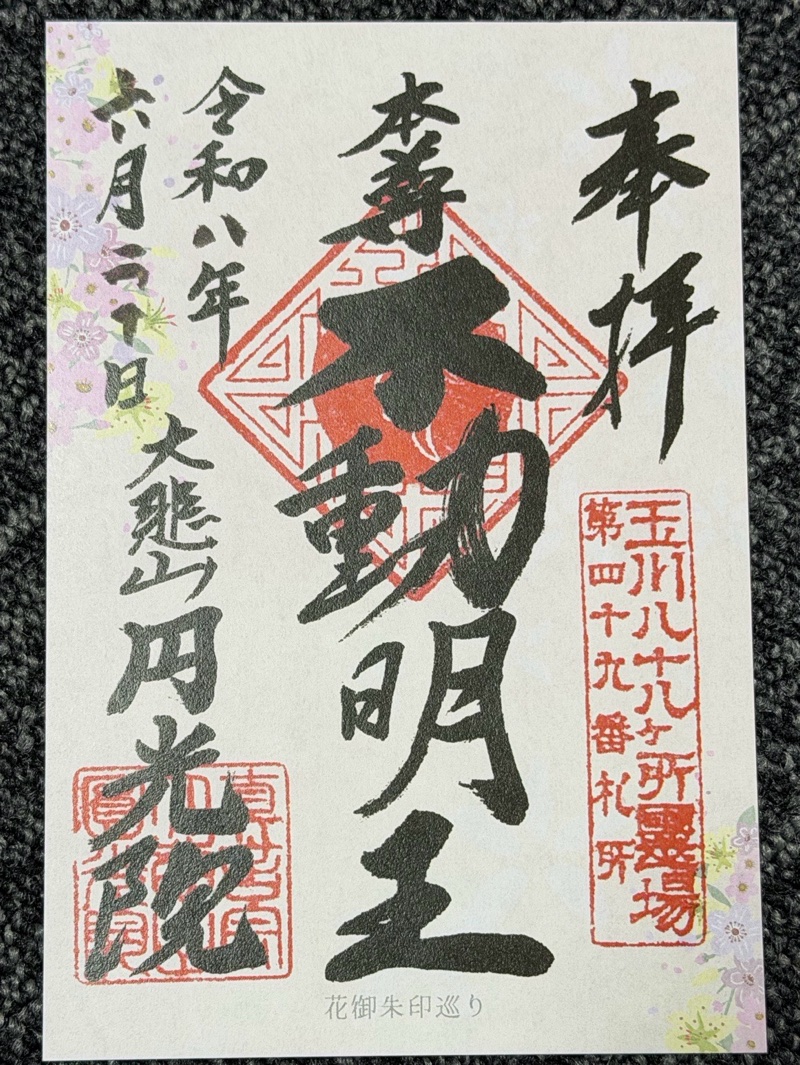 奉拝
玉川八十八ヶ所霊場
第四十九番札所
本尊
不動明王
令和八年
六月二十日
大悲山円光院
花御朱印巡り